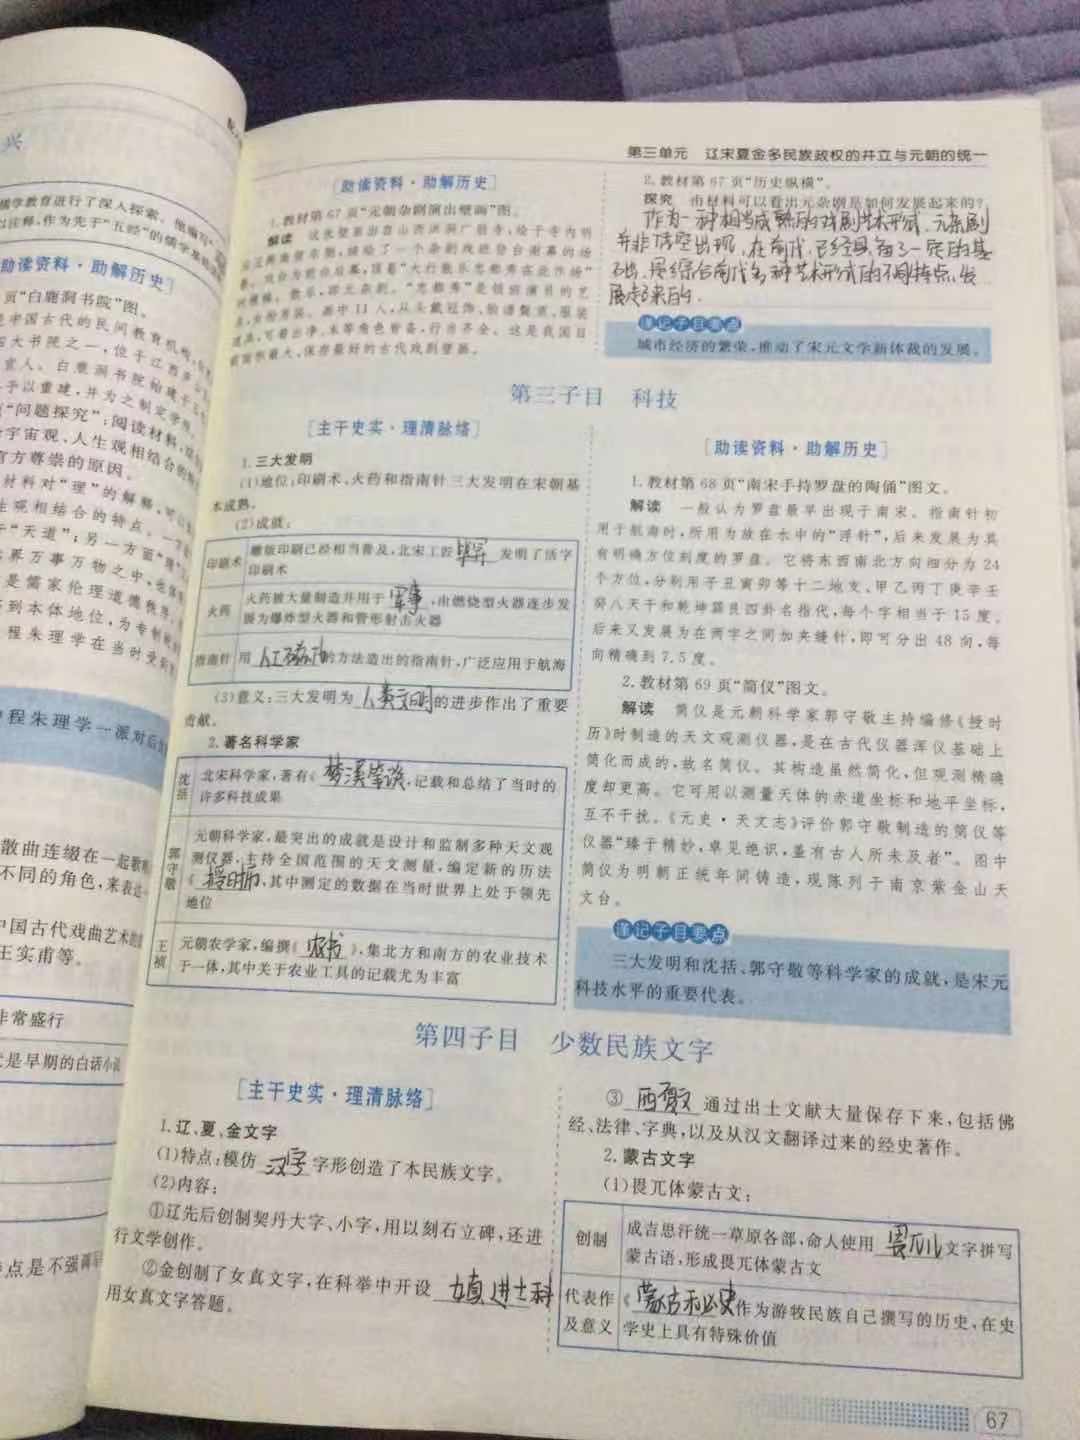 兴
儒学教育进行了深入探索。他编写“
以注释,作为先于“五经”的儒学基础
助读资料·助解历史]
页“白鹿洞书院”图。
是中国古代的民间教育机构,
四大书院之一,位于江西
宜人。白鹿洞书院始建于
予以重建,并为之制定学规。
“问题探究”:阅读材料,
宇宙观、人生观相结合的
官方尊崇的原因。
材料对“理”的解释,可以
生观相结合的特点。一方面
于“天道”;另一方面“理”
世界万事万物之中,也
是儒家伦理道德秩序,
到本体地位,为专制
程朱理学在当时受到
程朱理学一派对后
散曲连缀在一起
不同的角色,来表达
中国古代戏曲艺术的
王实甫等。
非常盛行
是早期的白话小说
点是不强调
第三单元 辽宋夏金多民族政权的并立与元朝的统一
[助读资料·助解历史]
1.教材第67页“元朝杂剧演出壁画”图。
解读 这张壁画出自山西洪洞广胜寺,绘于寺内明
应王殿南壁东侧,描绘了一个杂剧戏班登台谢幕的场
景。戏台为前台后幕,顶着“大行散乐忠都秀在此作场”
的横幅。散乐,即元杂剧。“忠都秀”是领班演员的艺
名,女扮男装。画中11人,从头戴冠饰、脸谱髯口、服装
道具,可看出净、末等角色皆备,行当齐全。这是我国目
前面积最大、保存最好的古代戏剧壁画。
2.教材第67页“历史纵横”。
探究 由材料可以看出元杂剧是如何发展起来的?
作为一种相当成熟的戏剧艺术形式,元杂剧
并非凭空出现,在前代已经具备了一定的基
础,是综合前代多种艺术形式的不同特点,发
展起来的.
谨记子目要点
城市经济的繁荣,推动了宋元文学新体裁的发展。
第三子目 科技
[主干史实·理清脉络]
1.三大发明
(1)地位:印刷术、火药和指南针三大发明在宋朝基
本成熟。
(2)成就:
印刷术 雕版印刷已经相当普及,北宋工匠 毕昇 发明了活字
印刷术
火药 火药被大量制造并用于 军事 ,由燃烧型火器逐步发
展为爆炸型火器和管形射击火器
指南针 用 人工磁化 的方法造出的指南针,广泛应用于航海
(3)意义:三大发明为 人类文明 的进步作出了重要
贡献。
2.著名科学家
沈括 北宋科学家,著有《 梦溪笔谈 》,记载和总结了当时的
许多科技成果
郭守敬 元朝科学家,最突出的成就是设计和监制多种天文观
测仪器,主持全国范围的天文测量,编定新的历法
《 授时历 》,其中测定的数据在当时世界上处于领先
地位
王祯 元朝农学家,编撰《 农书 》,集北方和南方的农业技术
于一体,其中关于农业工具的记载尤为丰富
[助读资料·助解历史]
1.教材第68页“南宋手持罗盘的陶俑”图文。
解读 一般认为罗盘最早出现于南宋。指南针初
用于航海时,所用为放在水中的“浮针”,后来发展为具
有明确方位刻度的罗盘。它将东西南北方向细分为24
个方位,分别用子丑寅卯等十二地支、甲乙丙丁庚辛壬
癸八天干和乾坤巽艮四卦名指代,每个字相当于15度。
后来又发展为在两字之间加夹缝针,即可分出48向,每
向精确到7.5度。
2.教材第69页“简仪”图文。
解读 简仪是元朝科学家郭守敬主持编修《授时
历》时制造的天文观测仪器,是在古代仪器浑仪基础上
简化而成的,故名简仪。其构造虽然简化,但观测精确
度却更高。它可用以测量天体的赤道坐标和地平坐标,
互不干扰。《元史·天文志》评价郭守敬制造的简仪等
仪器“臻于精妙,卓见绝识,盖有古人所未及者”。图中
简仪为明朝正统年间铸造,现陈列于南京紫金山天
文台。
谨记子目要点
三大发明和沈括、郭守敬等科学家的成就,是宋元
科技水平的重要代表。
第四子目 少数民族文字
[主干史实·理清脉络]
1.辽、夏、金文字
(1)特点:模仿 汉字 字形创造了本民族文字。
(2)内容:
①辽先后创制契丹大字、小字,用以刻石立碑,还进
行文学创作。
②金创制了女真文字,在科举中开设 女真进士科
用女真文字答题。
③ 西夏文 通过出土文献大量保存下来,包括佛
经、法律、字典,以及从汉文翻译过来的经史著作。
2.蒙古文字
(1)畏兀体蒙古文:
创制 成吉思汗统一草原各部,命人使用 畏兀儿 文字拼写
蒙古语,形成畏兀体蒙古文
代表作及意义 《 蒙古秘史 》作为游牧民族自己撰写的历史,在史
学史上具有特殊价值
67